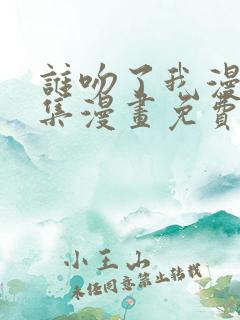 誰吻了我漫
集漫畫免費
小王山
未经同意禁止转载